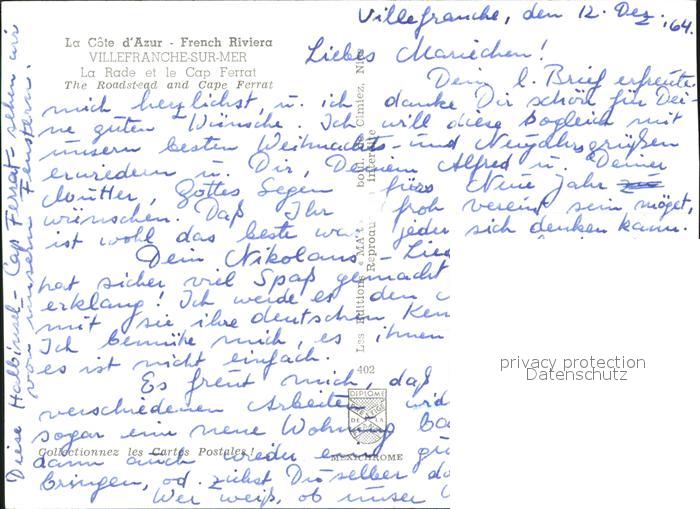 Villefranche, den 12. Dez. '64.
La Côte d'Azur - French Riviera
VILLEFRANCHE-SUR-MER
La Rade et le Cap Ferrat
The Roadstead and Cape Ferrat
Liebes Mariechen!
Dein l. Brief erfreute
mich herzlichst, u. ich danke Dir schön für Dei-
ne guten Wünsche. Ich will diese sogleich mit
unsern besten Weihnachts- und Neujahrsgrüßen
erwiedern u. Dir, Deinem Alfred u. Deiner
Mutter, Gottes Segen fürs Neue Jahr
wünschen. Daß Ihr froh vereint sein möget,
ist wohl das beste was jeder sich denken kann.
Dein Nikolaus-
hat sicher viel Spaß gemacht
erklang! Ich werde es den
mit sie ihre deutschen
Ich bemühe mich, es ihnen
es ist nicht einfach.
Es freut mich, daß
verschiedenen Arbeiten
sogar eine neue Wohnung
dann auch wieder
bringen, od. ziehst Du selber
Wer weiß, ob unser
Diese Halbinsel - Cap Ferrat - sehen wir
von unsern Fenstern.
Les Editions "MAR"
boul. de Cimiez, Nice
Reproduction interdite
402
DIPLOME
MEXICHROME
Collectionnez les Cartes Postales!
privacy protection
Datenschutz